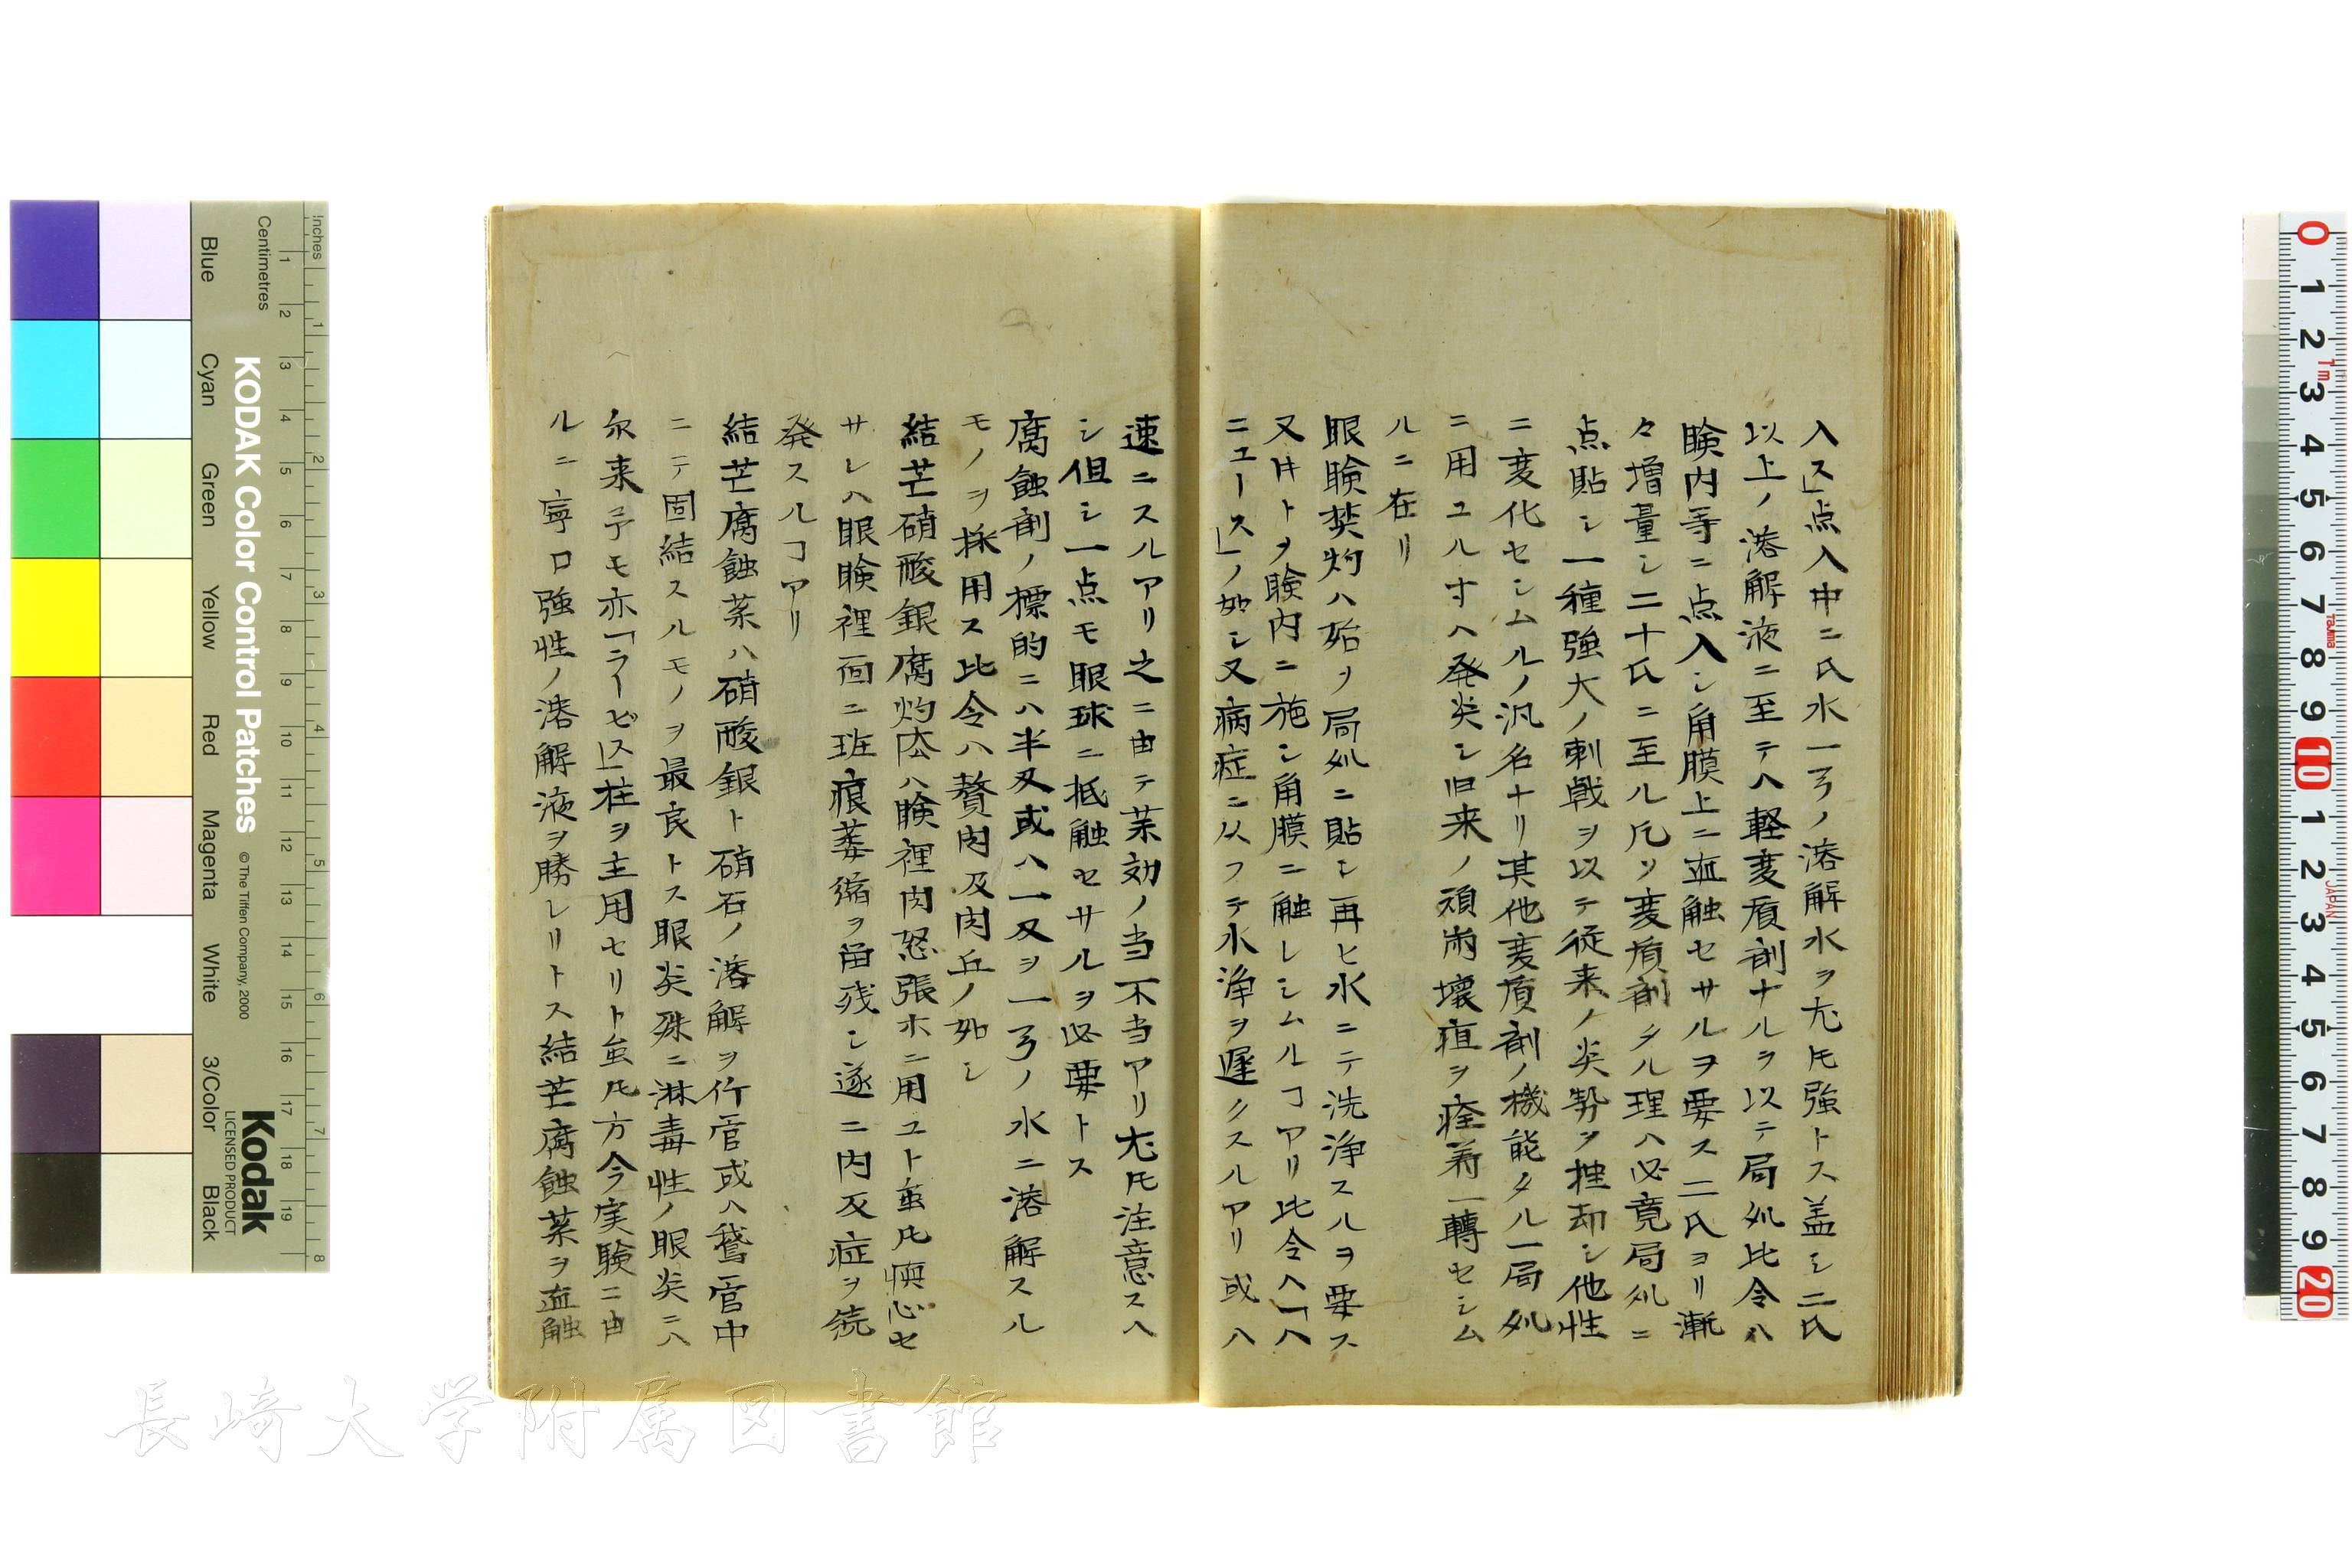 入ス」点入中ニ氏水一弓ノ溶解水ヲ尤𪜈強トス蓋シ二氏
以上ノ溶解液ニ至テハ軽変質剤ナルヲ以テ局処比令ハ
瞼内等ニ点入シ角膜上ニ血触セサルヲ要ス二氏ヨリ漸
々増量シ二十氏ニ至ル凡ソ変質剤タル理ハ必竟局処ニ
点貼シ一種強大ノ刺戟ヲ以テ従来ノ炎勢ヲ挫却シ他性
ニ変化セシムルノ汎名ナリ其他変質剤ノ機能タル一局処
ニ用ユル寸ハ発炎シ旧来ノ頑痈壊疽ヲ痊着一轉セシム
ルニ在リ
眼瞼焚灼ハ始ヲ局処ニ貼シ再ヒ水ニテ洗浄スルヲ要ス
又井トヲ瞼内ニ施シ角膜ニ触レシムルヿアリ比令ヘ「ハ
ニュース」ノ如シ又病症ニ从フテ水浄ヲ遅クスルアリ或ハ
速ニスルアリ之ニ由テ茉効ノ当不当アリ尤𪜈注意スヘ
シ但シ一点モ眼球ニ抵触セサルヲ必要トス
腐蝕剤ノ標的ニハ半叉或ハ一叉ヲ一弓ノ水ニ溶解スル
モノヲ採用ス比令ハ贅肉及肉丘ノ如シ
結芒硝酸銀腐灼法ハ瞼裡肉怒張ホニ用ユト虽𪜈慎心セ
サレハ眼瞼裡面ニ班痕萎縮ヲ畄残シ遂ニ内反症ヲ続
発スルヿアリ
結芒腐蝕茉ハ硝酸銀ト硝石ノ溶解ヲ竹管或ハ鵞管中
ニテ固結スルモノヲ最良トス眼炎殊ニ淋毒性ノ眼炎ニハ
尓来予モ亦「ラービス」柱ヲ主用セリト虽𪜈方今実験ニ由
ルニ寧ロ強性ノ溶解液ヲ勝レリトス結芒腐蝕茉ヲ血触
KODAK Color Control Patches
© The Tiffen Company, 2000
Kodak
LICENSED PRODUCT
Inches
Centimetres
Blue
Cyan
Green
Yellow
Red
Magenta
White
3/Color
Black
長崎大学附属図書館